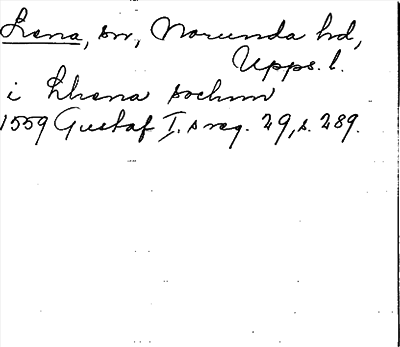 Lena, sn, Norunda hd,
Upps. l.
i Lhena sochnn
1559 Gustaf I:s reg. 29, s. 289.